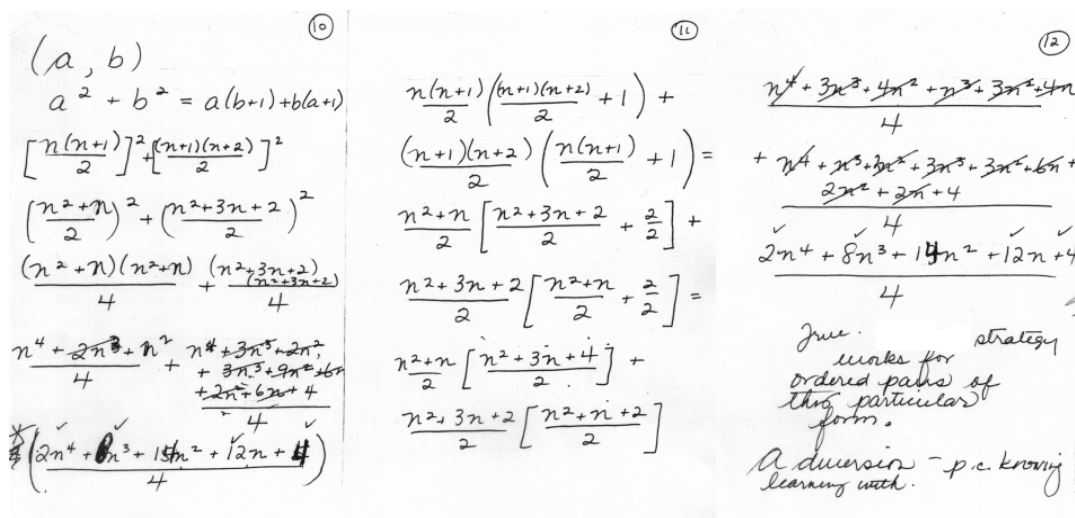 10
(a, b)
a² + b² = a(b+1)+b(a+1)
[n(n+1)/2]² + [(n+1)(n+2)/2]²
((n²+n)/2)² + ((n²+3n+2)/2)²
(n²+n)(n²+n)/4 + (n²+3n+2)(n²+3n+2)/4
(n⁴ + 2n³ + n²)/4 + (n⁴ + 3n³ + 2n²
+ 3n³ + 9n² + 6n
+ 2n² + 6n + 4)/4
(2n⁴ + 8n³ + 14n² + 12n + 4)/4
11
n(n+1)/2 ((n+1)(n+2)/2 + 1) +
(n+1)(n+2)/2 (n(n+1)/2 + 1) =
(n²+n)/2 [(n²+3n+2)/2 + 2/2] +
(n²+3n+2)/2 [(n²+n)/2 + 2/2] =
(n²+n)/2 [(n²+3n+4)/2] +
(n²+3n+2)/2 [(n²+n+2)/2]
12
(n⁴ + 3n³ + 4n² + n³ + 3n² + 4n)/4
+ (n⁴ + n³ + 2n² + 3n³ + 3n² + 6n +
2n² + 2n + 4)/4
(2n⁴ + 8n³ + 14n² + 12n + 4)/4
True. strategy
works for
ordered pairs of
this particular
form.
A diversion - p.c. knowing
learning with.